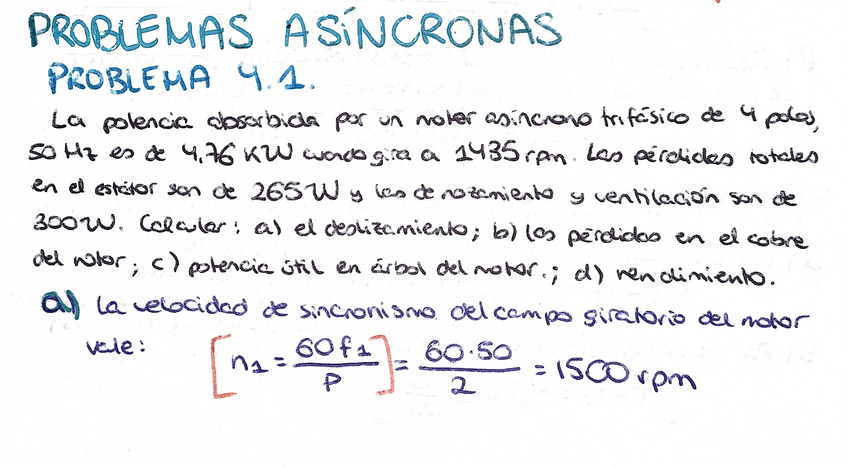 PROBLEMAS ASÍNCRONAS
PROBLEMA 4.1.
La potencia absorbida por un motor asíncrono trifásico de 4 polos,
50 Hz es de 4,76 KW cuando gira a 1435 rpm. Las pérdidas totales
en el estátor son de 265W y las de rozamiento y ventilación son de
300W. Calcular: a) el deslizamiento; b) las pérdidas en el cobre
del rotor; c) potencia útil en árbol del motor.; d) rendimiento.
a) La velocidad de sincronismo del campo giratorio del motor
vale: [n1 = 60f1/P] = 60·50/2 = 1500 rpm